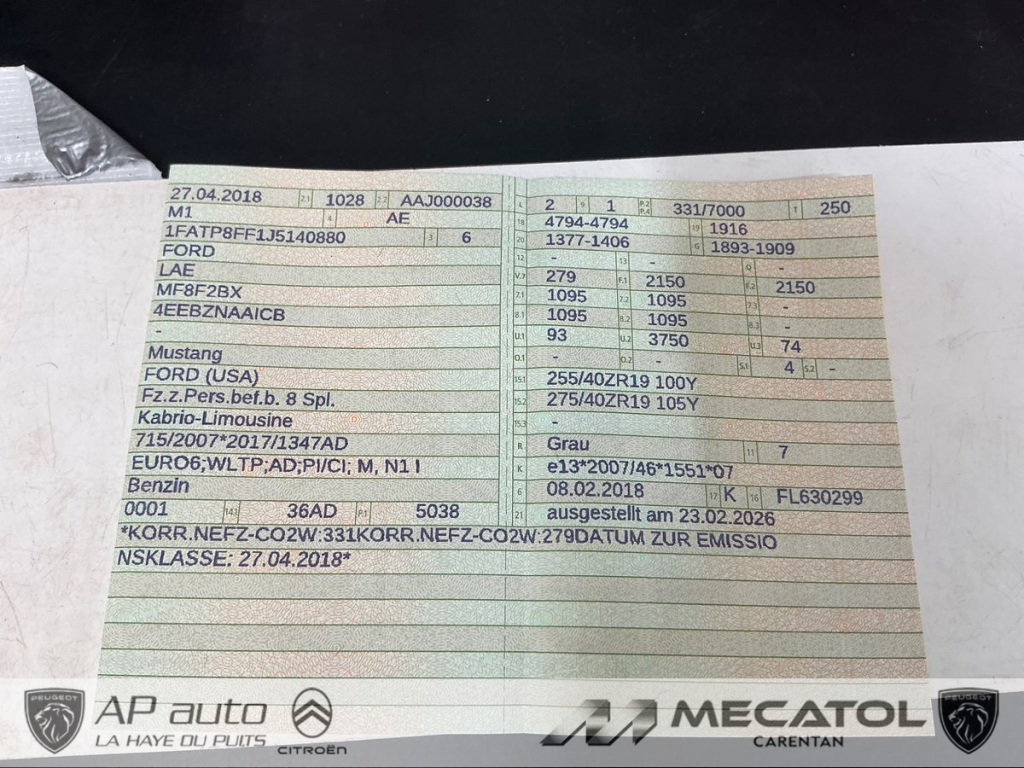 27.04.2018 2.1 1028 2.2 AAJ000038
M1 4 AE
1FATP8FF1J5140880 3 6
FORD
LAE
MF8F2BX
4EEBZNAAICB
-
Mustang
FORD (USA)
Fz.z.Pers.bef.b. 8 Spl.
Kabrio-Limousine
715/2007*2017/1347AD
EURO6;WLTP;AD;PI/CI; M, N1 I
Benzin
0001 14.1 36AD P.1 5038
L 2 9 1 P.2 P.4 331/7000 T 250
18 4794-4794 19 1916
20 1377-1406 G 1893-1909
12 - 13 - Q -
V.7 279 F.1 2150 F.2 2150
7.1 1095 7.2 1095 7.3 -
8.1 1095 8.2 1095 8.3 -
U.1 93 U.2 3750 U.3 74
O.1 - O.2 - S.1 4 S.2 -
15.1 255/40ZR19 100Y
15.2 275/40ZR19 105Y
15.3 -
R Grau 11 7
K e13*2007/46*1551*07
6 08.02.2018 17 K 16 FL630299
21 ausgestellt am 23.02.2026
*KORR.NEFZ-CO2W:331KORR.NEFZ-CO2W:279DATUM ZUR EMISSIO
NSKLASSE: 27.04.2018*
PEUGEOT
AP auto
LA HAYE DU PUITS
CITROËN
MECATOL
CARENTAN
PEUGEOT